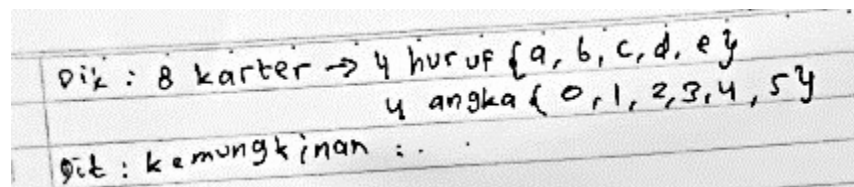 Dik : 8 karter → 4 huruf {a, b, c, d, e}
4 angka { 0, 1, 2, 3, 4, 5}
Dit : kemungkinan : . .